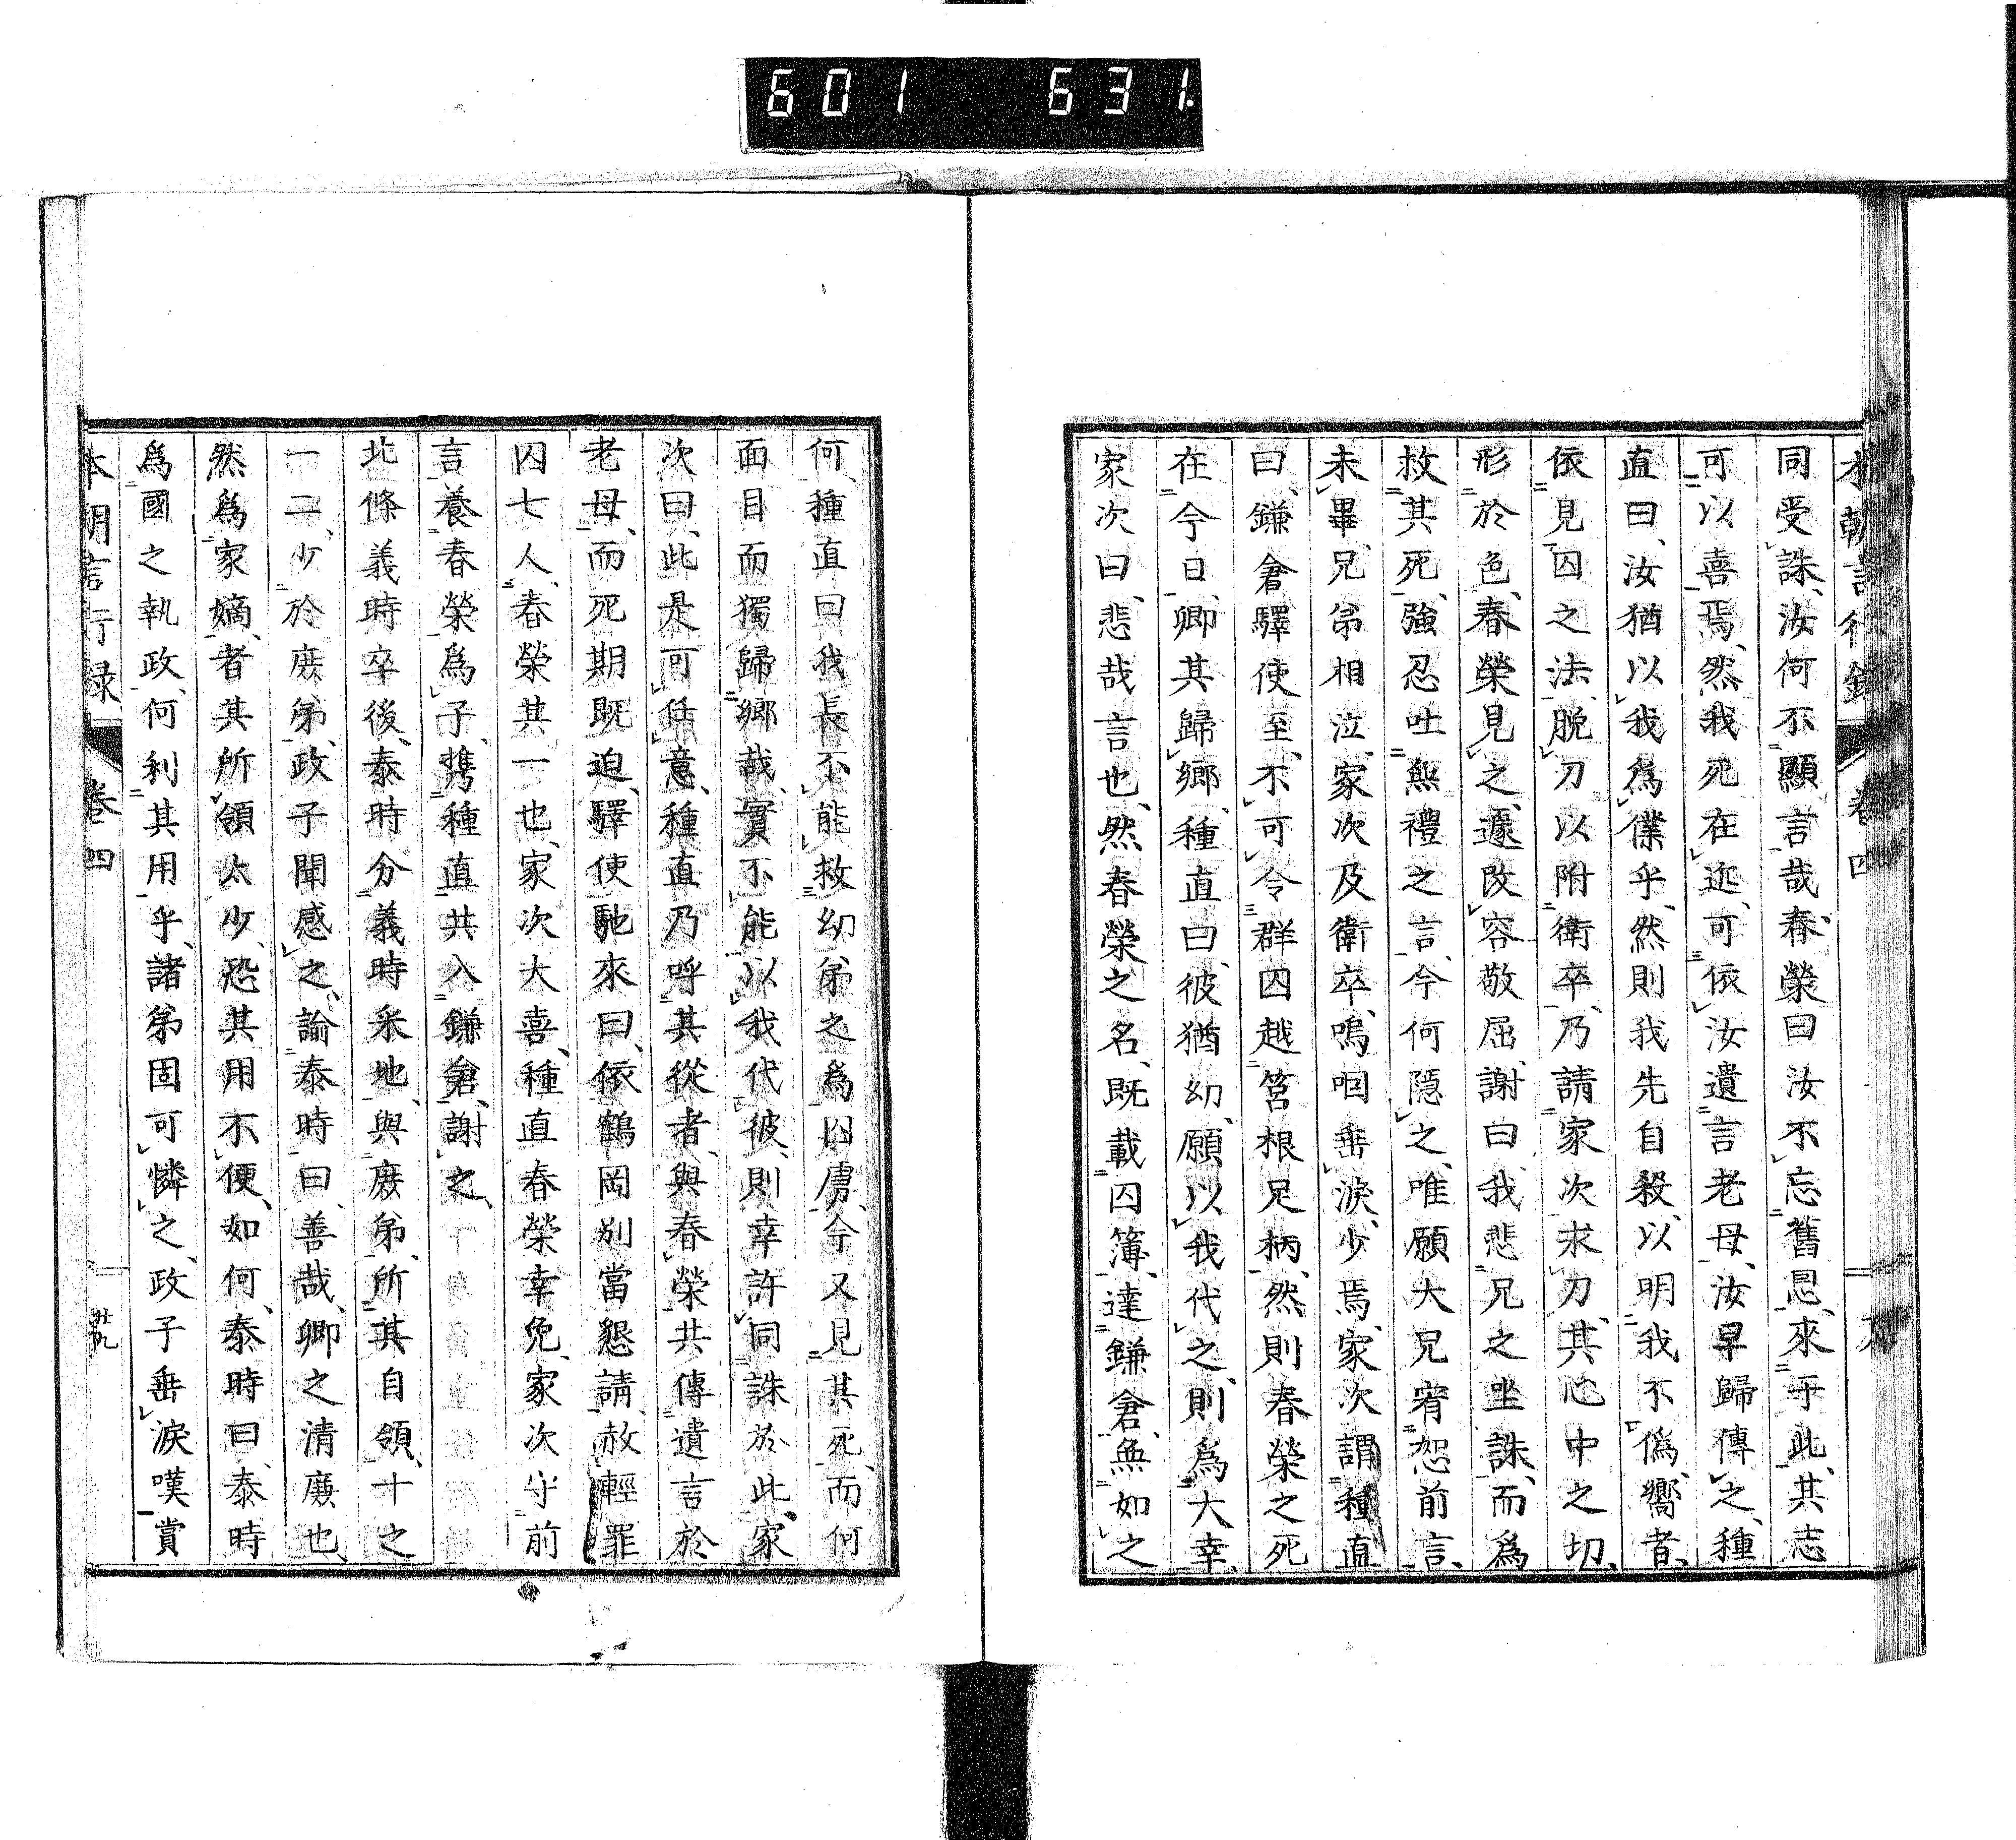 601 631
同受誅、汝何不顯言哉、春榮曰汝不忘舊恩、來于此、其志
可以喜焉、然我死在迩、可依汝遺言老母、汝早歸傳之、種
直曰、汝猶以我爲僕乎、然則我先自殺、以明我不僞、嚮者、
依見囚之法、脱刀以附衛卒、乃請家次求刀、其心中之切、
形於色、春榮見之、遽改容敬屈、謝曰我悲兄之坐誅、而爲
救其死、強忍吐無禮之言、今何隱之、唯願大兄宥恕前言、
未畢、兄弟相泣、家次及衛卒、嗚咽垂淚、少焉、家次謂種直
曰、鎌倉驛使至、不可令群囚越筥根足柄、然則春榮之死
在今日、卿其歸鄉、種直曰、彼猶幼、願以我代之、則爲大幸、
家次曰、悲哉言也、然春榮之名、既載囚簿、達鎌倉、無如之
何、種直曰我長不能救幼弟之爲囚虜、今又見其死、而何
面目而獨歸鄉哉、實不能以我代彼、則幸許同誅於此、家
次曰、此是可任意、種直乃呼其從者、與春榮共傳遺言於
老母、而死期既迫、驛使馳來曰、依鶴岡別當懇請、赦輕罪
囚七人、春榮其一也、家次大喜、種直春榮幸免、家次守前
言、養春榮爲子、携種直共入鎌倉、謝之、
北條義時卒後、泰時分義時釆地、與庶弟、所其自領、十之
一二、少於庶弟、政子聞感之、諭泰時曰、善哉、卿之清廉也、
然爲家嫡、者其所領太少、恐其用不便、如何、泰時曰、泰時
爲國之執政、何利其用乎、諸弟固可憐之、政子垂淚嘆賞
本朝言行録
卷四
廿九